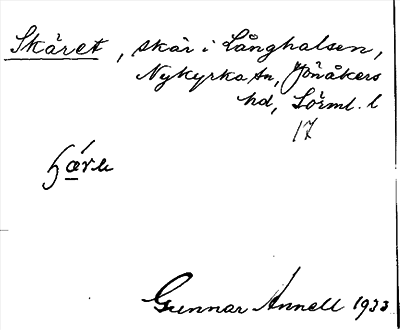 Skäret, skär i Långhalsen,
Nykyrka sn, Jönåkers
hd, Sörml. l
17
Gunnar Annell 1933